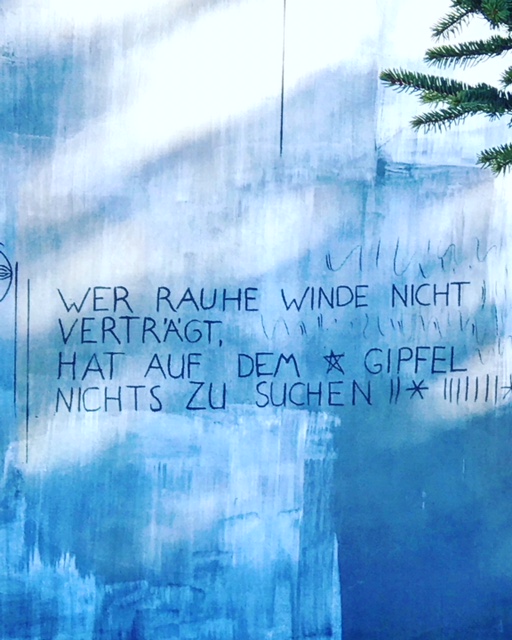 WER RAUHE WINDE NICHT
VERTRÄGT,
HAT AUF DEM ☆ GIPFEL
NICHTS ZU SUCHEN